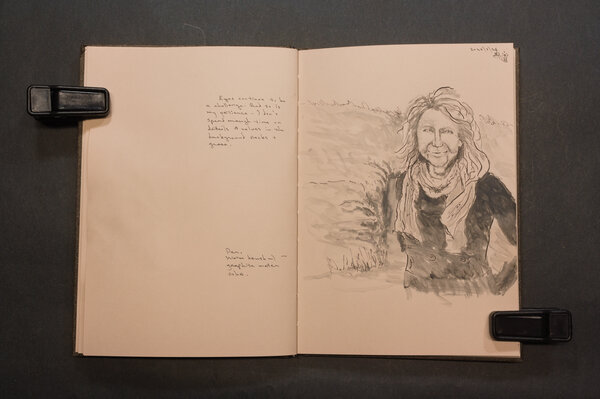 Eyes continue to be
a challenge. And so is
my patience - I don't
spend enough time on
details & values in the
background rocks &
grass.
Pen,
Water brush w/
graphite water